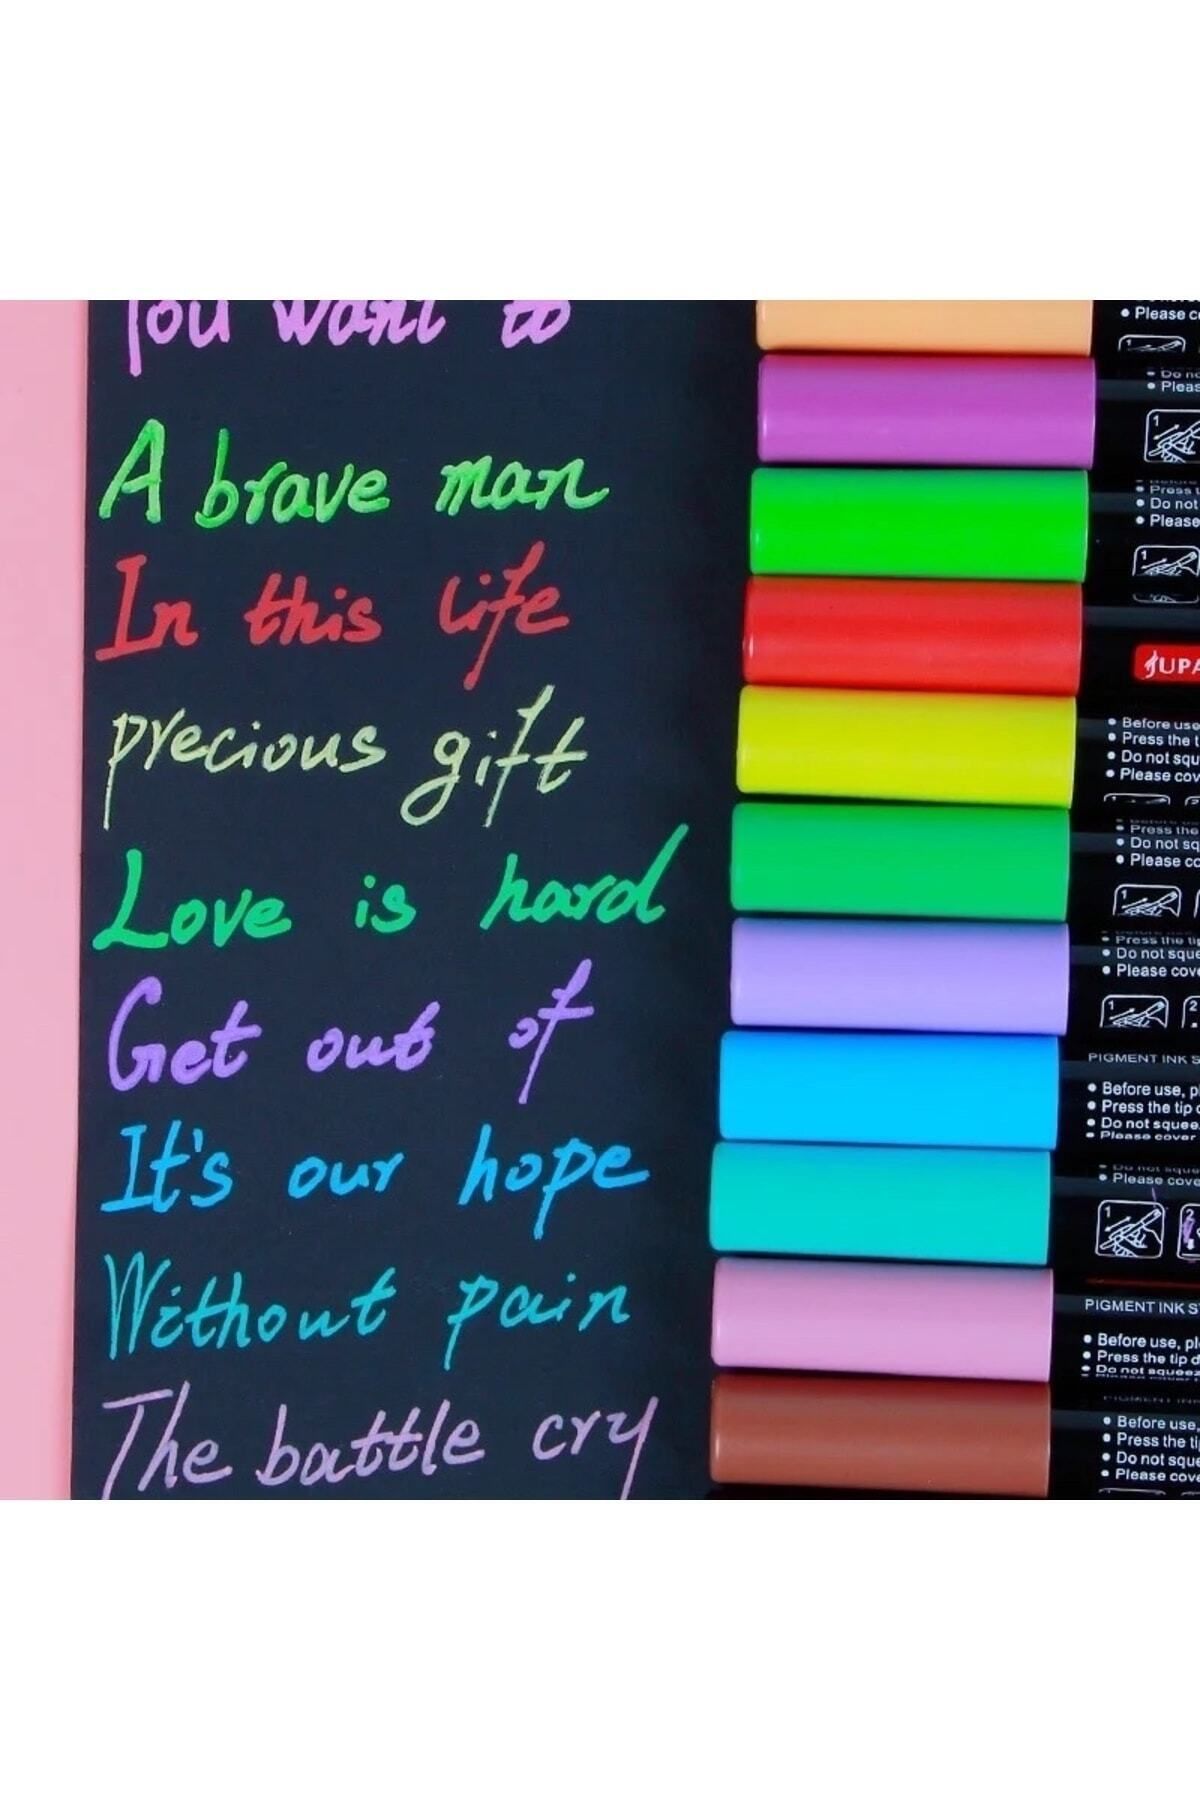 You want to
A brave man
In this life
precious gift
Love is hard
Get out of
It's our hope
Without pain
The battle cry
• Please c
• Do no
• Pleas
1
• Press
• Do not
• Please
1
• Before use
• Press the t
• Do not squ
• Please cov
• Press the
• Do not sq
• Please co
1
• Press the tip
• Do not sque
• Please cove
1 2
PIGMENT INK S
• Before use, pl
• Press the tip d
• Do not squee
• Please cover
• Do not sque
• Please cove
1 2
PIGMENT INK S
• Before use, pl
• Press the tip d
• Do not squeez
• Before use,
• Press the ti
• Do not sque
• Please cove